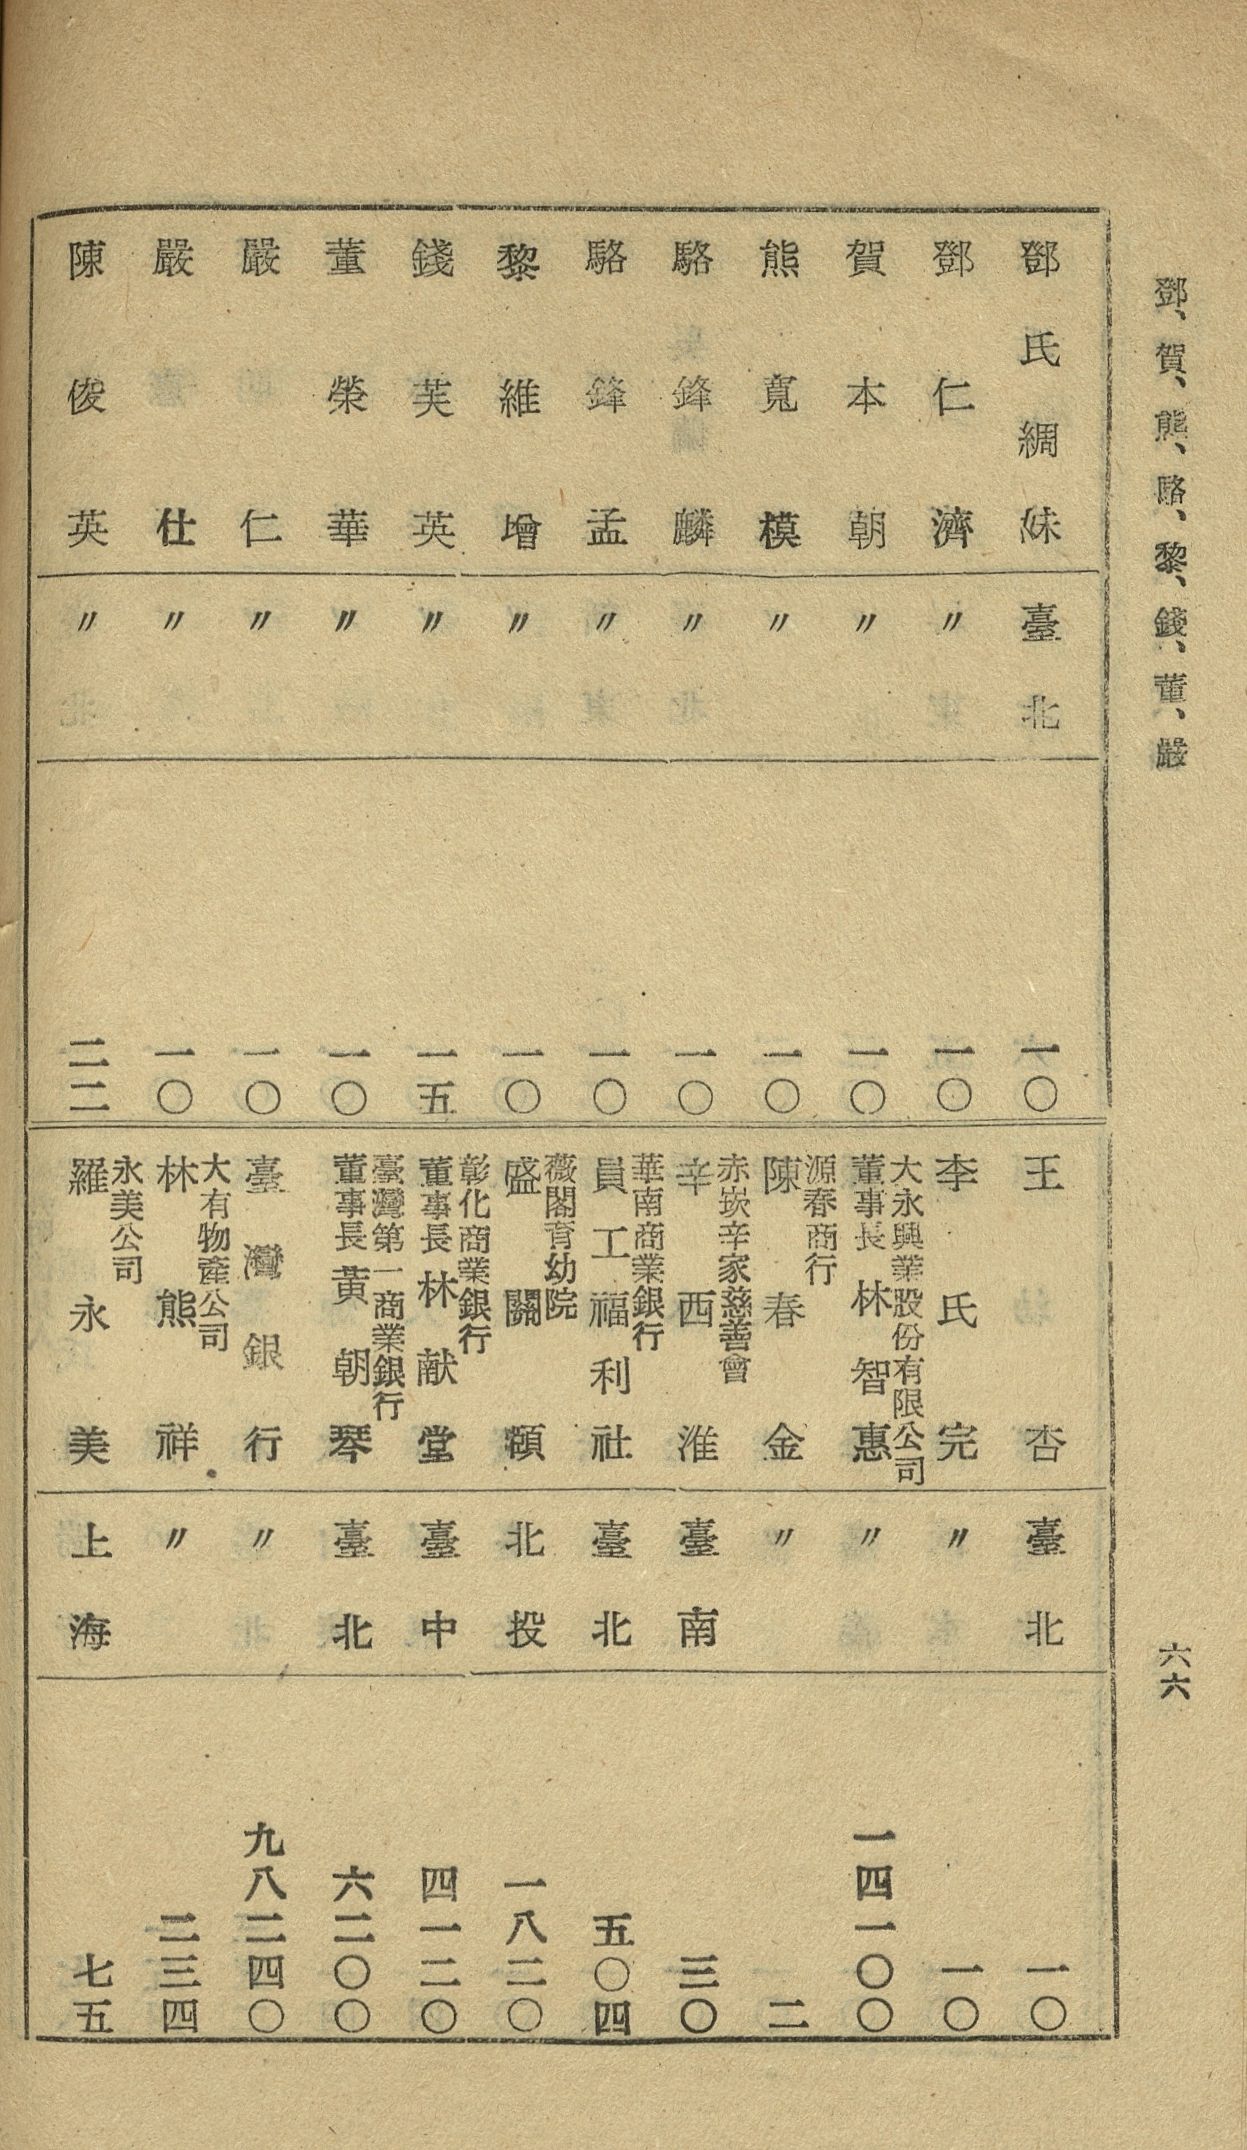 鄧、賀、熊、駱、黎、錢、董、嚴
六六
鄧氏綢妹 臺北 一〇
鄧仁濟 〃 一〇
賀本朝 〃 一〇
熊寬模 〃 一〇
駱鋒麟 〃 一〇
駱鋒孟 〃 一〇
黎維增 〃 一〇
錢芙英 〃 一五
董榮華 〃 一〇
嚴仁 〃 一〇
嚴仕 〃 一〇
陳俊英 〃 二二
王杏 臺北 一〇
李氏完 〃 一〇
大永興業股份有限公司
董事長林智惠 〃 一四一〇〇
源春商行
陳春金 〃 二
赤崁辛家慈善會
辛西淮 臺南 三〇
華南商業銀行
員工福利社 臺北 五〇四
薇閣育幼院
盛關頤 北投 一八二〇
彰化商業銀行
董事長林献堂 臺中 四一二〇
臺灣第一商業銀行
董事長黃朝琴 臺北 六二〇〇
臺灣銀行 〃 九八二四〇
大有物產公司
林熊祥 〃 二三四
永美公司
羅永美 上海 七五